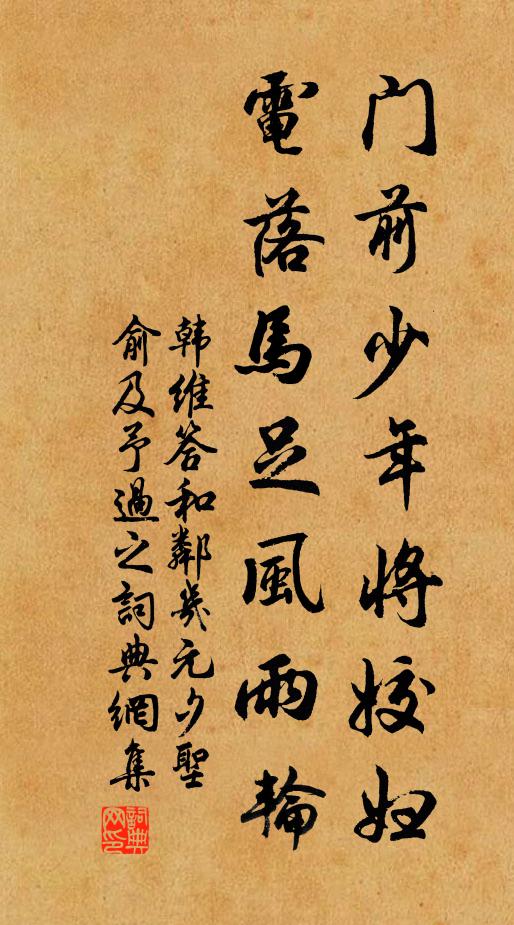 门前少年将姣妇
電落馬足風雨輪
韩维答和鄰幾元夕聖
俞及予過之詞典網集
詞典网印